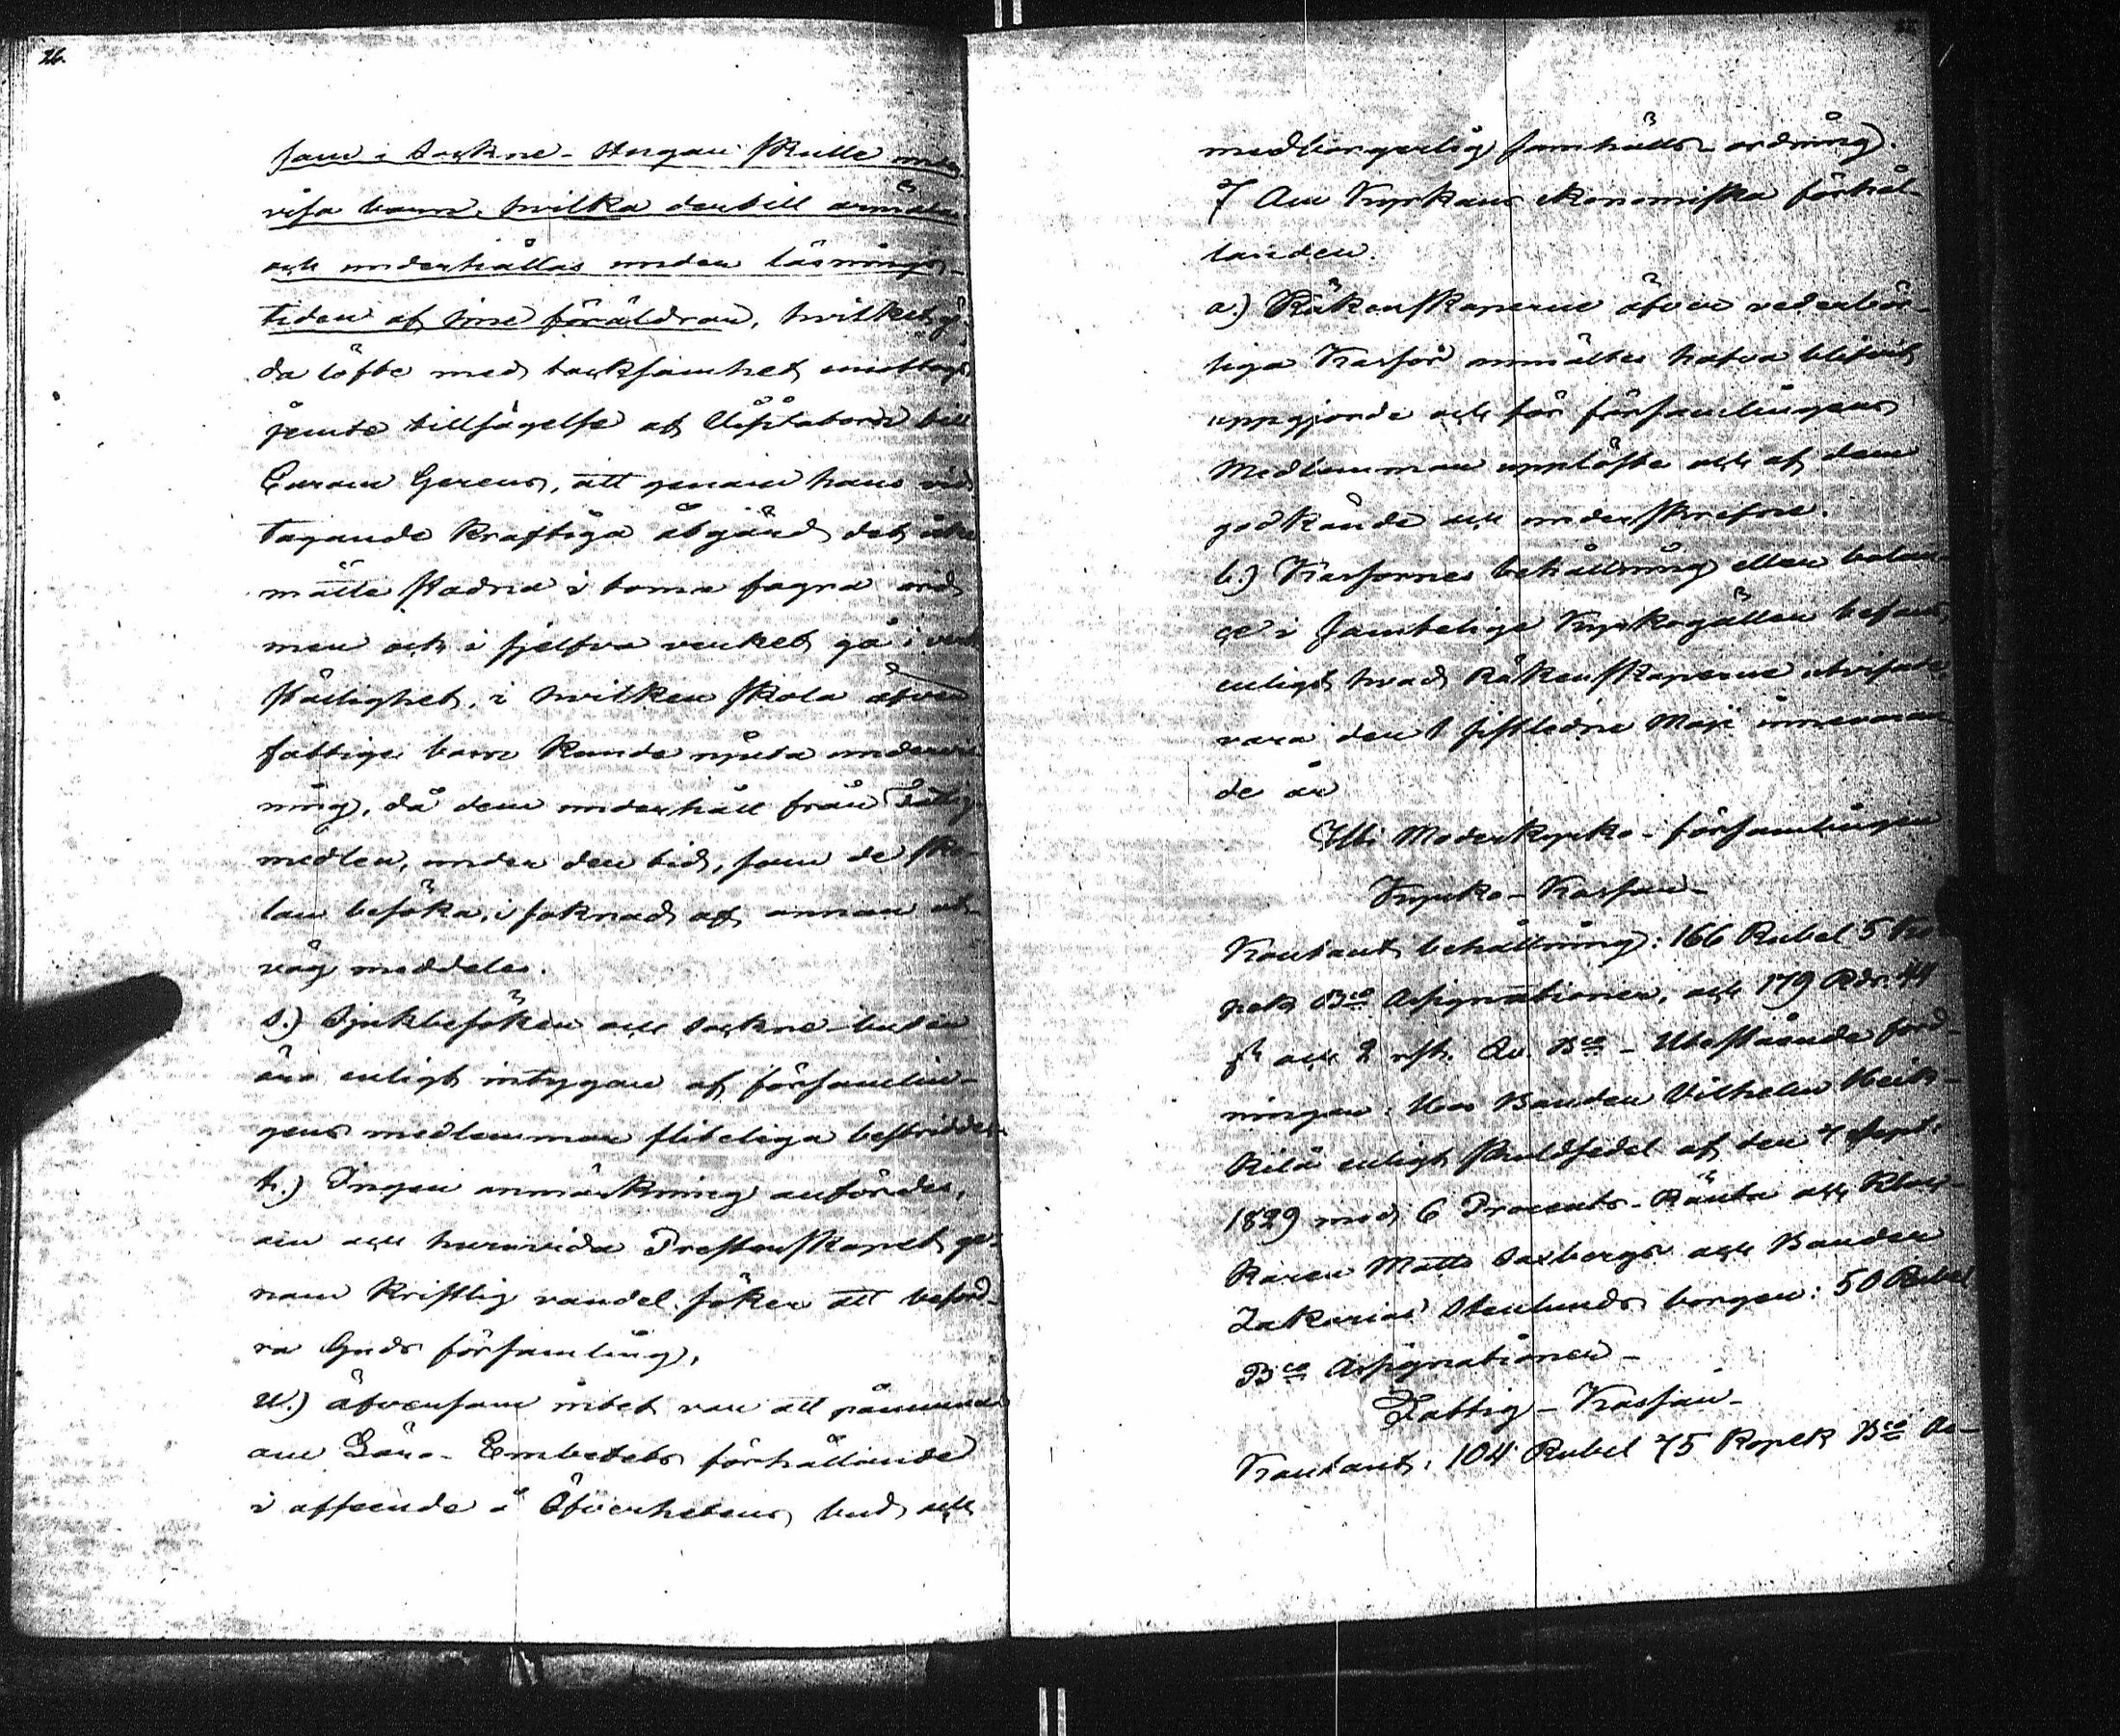 26.
som i Sockne-Stugan skulle under
visa barn, hvilka dertill anmälas
och underhållas under läsnings-
tiden af sine föräldrar, hvilket gif-
da löfte med tacksamhet emottogs
jemte tillsägelse af Visitator till
Curam Gerens, att genom hans vid
tagande kraftiga åtgärd det icke
måtte stadna i toma fagra ord
men och i sjelfva verket gå i verk
ställighet, i hvilken skola äfven
fattige barn kunde njuta undervis
ning, då dem underhåll från Fattig
medlen, under den tid, som de sko-
lan besöka, i saknad af annan ut-
väg meddeles.
s.) Sjukbesöken och Sockne-buden
äro enligt intygan af församlin-
gens medlemmar fliteliga bestridde.
t.) Ingen anmärkning anfördes,
om och huruvida Presterskapet ge-
nom Kristlig vandel söker att beford-
ra Guds församling,
u.) äfvensom intet var att påminna
om Läro-Embetets förhållande
i afseende å Öfverhetens bud och
medborgerlig samhälls-ordning.
7 Om Kyrkans ekonomiska förhål-
landen.
a.) Räkenskaperne öfver vederbör-
liga Kassor anmältes hafva blifvit
uppgjorde och för församlingens
Medlemmar uppläste och af dem
godkände och underskrefne.
b.) Kassornes behållning eller balan-
ce i samtelige Kyrkogällen befans,
enligt hvad Räkenskaperne utvisade,
vara den 1 sistledne Maji innevaran-
de år
I Moderkyrko-församlingen
Kyrko-Kassan-
Kontant behållning: 166 Rubel 5 Ko-
pek Bco Assignationer, och 179 Rdr. 44
sk och 2 rst. Bco - Utestående ford-
ringar: Hos Bonden Vilhelm Heik-
kilä enligt skuldsedel af den 7 Sept.
1829 med 6 Procents-Ränta och Kloc-
karen Matts Saxbergs och Bonden
Zakarias Stenlunds borgen: 50 Rubel
Bco Assignationer-
Fattig-Kassan-
Kontant: 104 Rubel 75 Kopek Bco As-